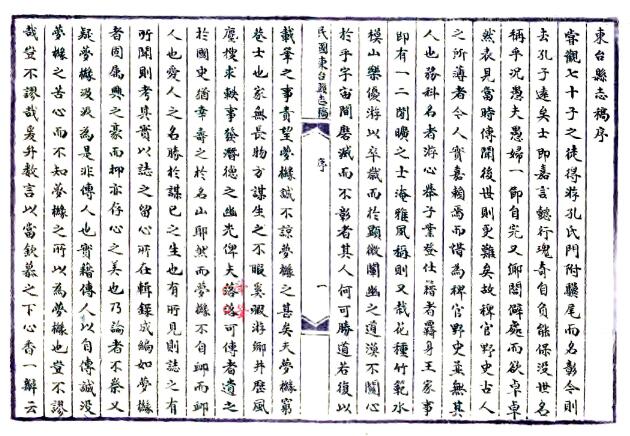 東台縣志稿序
嘗觀七十子之徒得游孔氏門附驥尾而名彰今則
去孔子遠矣士即嘉言懿行瑰奇自負能保沒世名
稱乎況愚夫愚婦一節自完又鄉閭僻處而欲卓卓
然表見當時傳聞後世則更難矣故稗官野史古人
之所薄者今人實嘉賴焉而惜為稗官野史者無其
人也務科名者游心舉子業登仕籍者羈身王家事
即有一二閒曠之士淹雅風稱則又栽花種竹範水
模山樂優游以卒歲而於顯微闡幽之道漠不關心
於乎宇宙間磨滅而不彰者其人何可勝道若復以
民國東台縣志稿
序
一
載筆之事責望夢槎誠不諒夢槎之甚矣夫夢槎窮
巷士也家無長物方謀生之不暇奚暇游鄉井歷風
塵搜求軼事發潛德之幽光俾夫落落可傳者遺之
於國史猶幸壽之於名山耶然而夢槎不自卹而卹
人也愛人之名勝於謀己之生也有所見則誌之有
所聞則考其實以誌之留心所在輯錄成編如夢槎
者固屬興之豪而抑亦存心之美也乃論者不察又
疑夢槎汲汲為是非傳人也實藉傳人以自傳誠沒
夢槎之苦心而不知夢槎之所以為夢槎也豈不謬
哉豈不謬哉爰升教言以當欽慕之下心香一瓣云